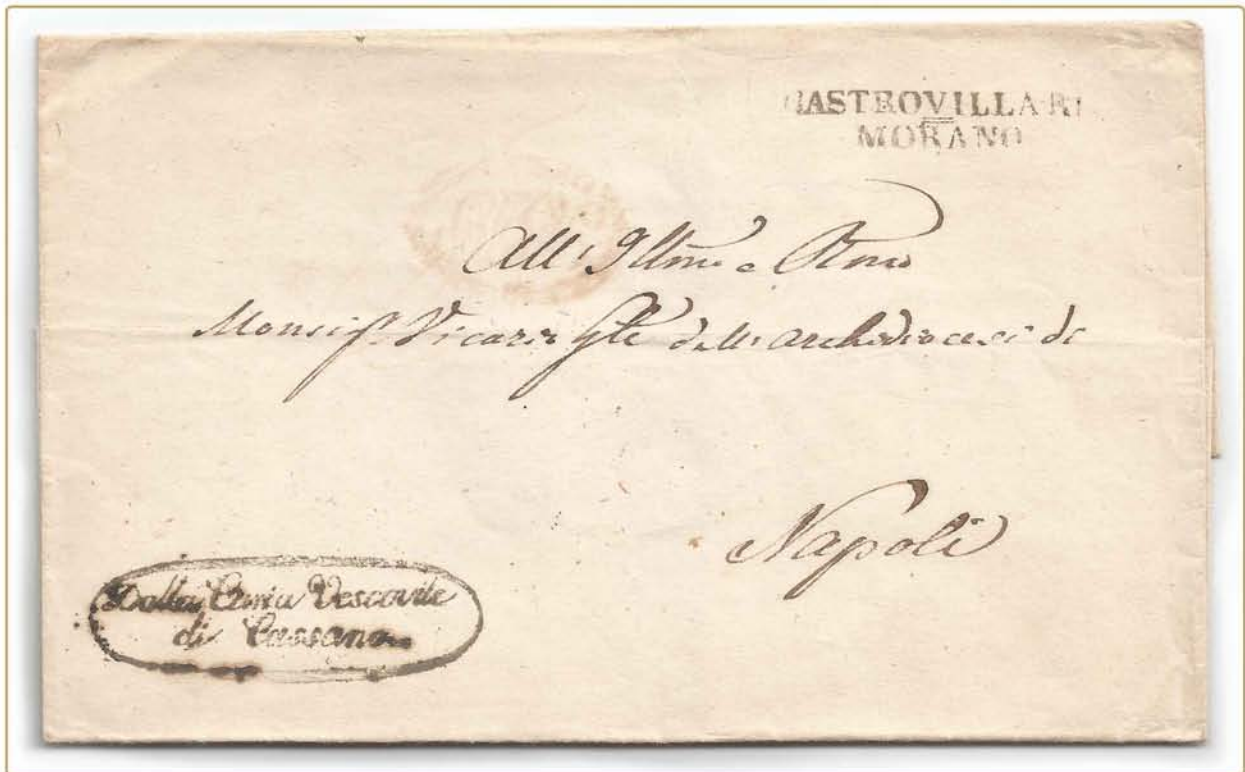 CASTROVILLARI
MORANO
All' Illmo e Rmo
Monsigr Vicario Gle dell'archidiocesi di
Napoli
Dalla Curia Vescovile
di Cassano